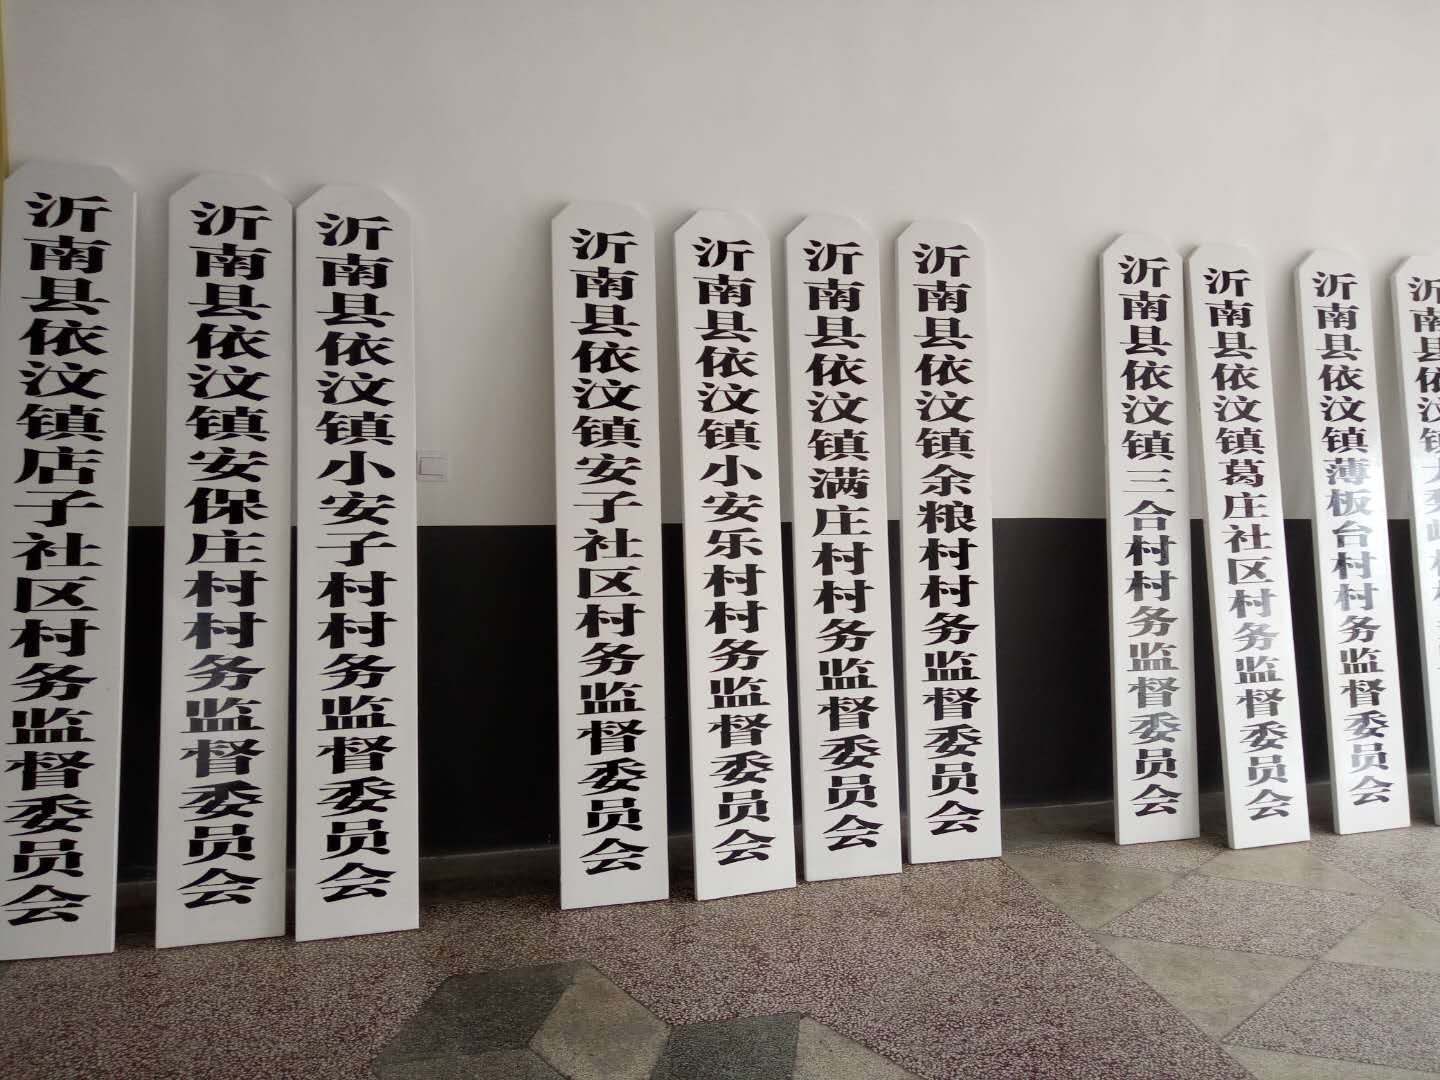 沂南县依汶镇店子社区村务监督委员会
沂南县依汶镇安保庄村村务监督委员会
沂南县依汶镇小安子村村务监督委员会
沂南县依汶镇安子社区村务监督委员会
沂南县依汶镇小安乐村村务监督委员会
沂南县依汶镇满庄村村务监督委员会
沂南县依汶镇余粮村村务监督委员会
沂南县依汶镇三合村村务监督委员会
沂南县依汶镇葛庄社区村务监督委员会
沂南县依汶镇薄板台村村务监督委员会
沂南县依汶镇